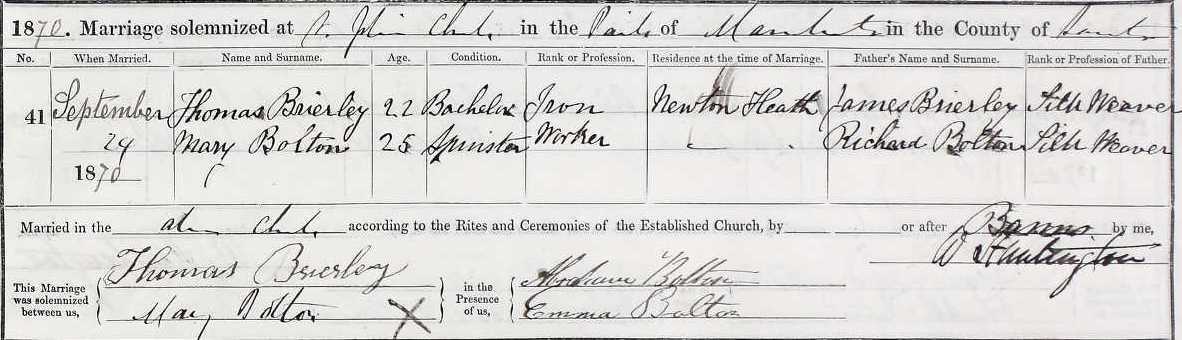 1870. Marriage solemnized at St. John Church in the Parish of Manchester in the County of
No. When Married. Name and Surname. Age. Condition. Rank or Profession. Residence at the time of Marriage. Father's Name and Surname. Rank or Profession of Father.
41 September Thomas Brierley 22 Bachelor Iron Newton Heath James Brierley Silk Weaver
Mary Bolton 25 Spinster Worker Richard Bolton Silk Weaver
1870
Married in the Church according to the Rites and Ceremonies of the Established Church, by or after Banns by me,
W Huntington
Thomas Brierley Abraham Bolton
This Marriage was solemnized between us, in the Presence of us,
Mary Bolton X Emma Bolton